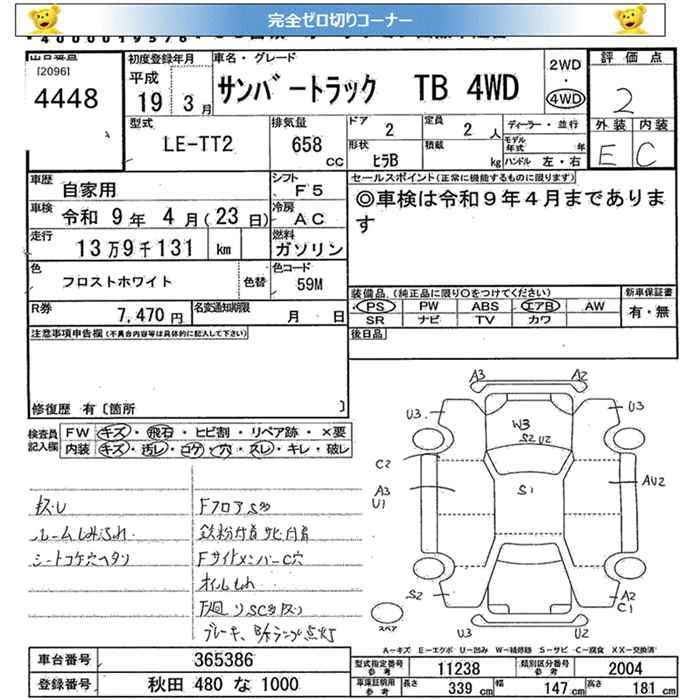 完全ゼロ切りコーナー
出品番号
[2096]
4448
初度登録年月
平成
19 3月
車名・グレード
サンバートラック TB 4WD
2WD
・
4WD
評価点
2
外装 内装
E C
型式
LE-TT2
排気量
658
CC
ドア
2
定員
2 人
形状
ヒラB
積載
kg
ディーラー・並行
モデル年式 年
ハンドル 左・右
車歴
自家用
シフト
F5
車検
令和 9年 4月(23日)
冷房
AC
走行
13万9千131 km
燃料
ガソリン
色
フロストホワイト
色替
色コード
59M
R券
7,470円
名変通知期限
月 日
セールスポイント(正常に機能するものに限ります)
◎車検は令和9年4月まであります
装備品(純正品に限り○をつけてください)
PS PW ABS エアB AW
SR ナビ TV カワ
新車保証書
有・無
後日品
注意事項申告欄(不具合内容等は具体的に記入して下さい)
修復歴 有〔箇所 〕
検査員記入欄
FW キズ・飛石・ヒビ割・リペア跡・×要
内装 キズ・汚レ・コゲ・穴・スレ・キレ・破レ
Fフロアスレ
シートコゲ穴ヘタリ
Fサイドメンバー C穴
オイルもれ
A3 A2
U3 U3
W3
S2 U2
C2
A3
U1
S1
AU2
S2
A2
C1
U3 U2
スペア
A=キズ E=エクボ U=凹み W=補修跡 S=サビ C=腐食 XX=交換済
車台番号
365386
登録番号
秋田 480 な 1000
型式指定番号
参考
11238
類別区分番号
参考
2004
車庫証明用
参考
長さ 339 cm
幅 147 cm
高さ 181 cm